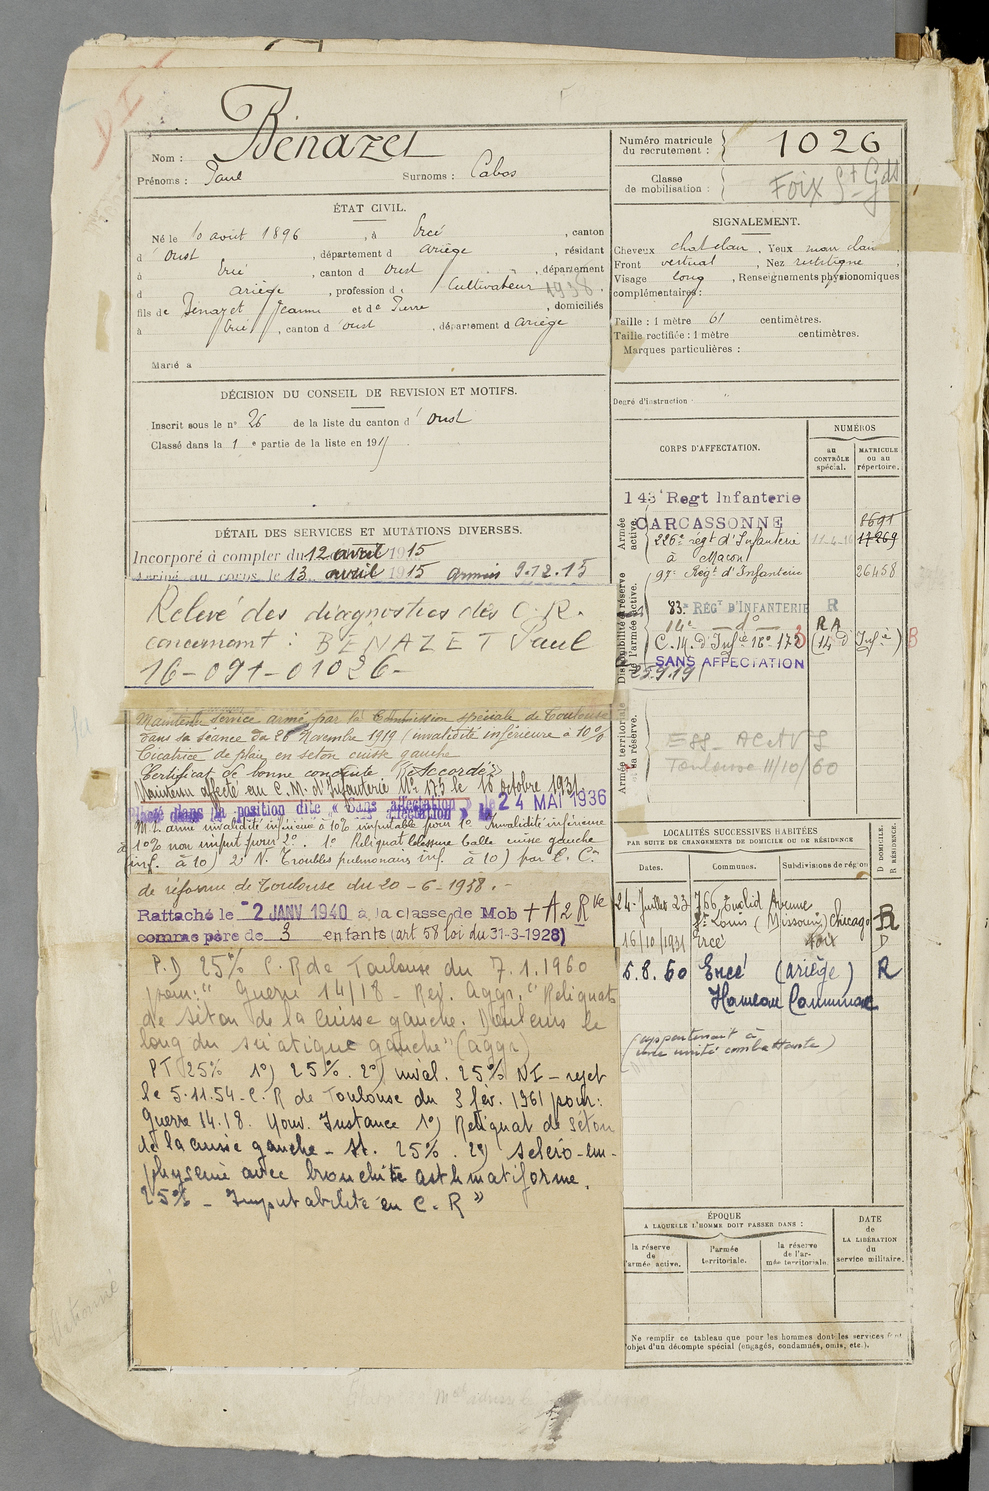 Nom : Bénazet
Prénoms : Paul Surnoms : Cabos
ÉTAT CIVIL.
Né le 10 août 1896, à Ercé, canton
d'Oust, département d Ariège, résidant
à Ercé, canton d Oust, département
d Ariège, profession de Cultivateur 1938.
fils de Bénazet Jeanne et de Pierre, domiciliés
à Ercé, canton d'Oust, département d Ariège
Marié à
DÉCISION DU CONSEIL DE REVISION ET MOTIFS.
Inscrit sous le nº 26 de la liste du canton d'Oust
Classé dans la 1e partie de la liste en 191
DÉTAIL DES SERVICES ET MUTATIONS DIVERSES.
Incorporé à compter du 12 avril 1915
Arrivé au corps le 13 avril 1915 9.12.15
Relevé des diagnostics des C.R.
concernant : BENAZET Paul
16-091-01026-
Maintenu service armé par la Commission spéciale de Toulouse
dans sa séance du 26 Novembre 1919 / invalidité inférieure à 10%
Cicatrice de plaie en seton cuisse gauche
Certificat de bonne conduite "Accordé"
Maintenu affecté au C.M. d'Infanterie Nº 173 le 16 octobre 1931
Placé dans la position dite « Sans affectation » le 24 MAI 1936
M.S. armé invalidité inférieure à 10% imputable pour 1º Invalidité inférieure
à 10% non imput pour 2º. 1º Reliquat blessure balle cuisse gauche
(inf. à 10) 2º N. Troubles pulmonaires inf. à 10) par C. C.
de réforme de Toulouse du 20-6-1938.-
Rattaché le 2 JANV 1940 à la classe de Mob + A 2 Rve
comme père de 3 enfants (art 58 loi du 31-3-1928)
P.D 25% C.R de Toulouse du 7.1.1960
pour: "Guerre 14/18 - Rev. Aggr. "Reliquats
de séton de la cuisse gauche. Douleurs le
long du sciatique gauche" (aggr)
PT 25% 1º) 25%. 2º) inval. 25% NI - rejet
le 5.11.54 - C.R de Toulouse du 3 fév. 1961 pour:
Guerre 14.18. Nouv. Instance 1º) Reliquat de séton
de la cuisse gauche - St. 25%. 2º) scléro-em-
physème avec bronchite asthmatiforme.
25% - Imputabilité en C.R"
Numéro matricule du recrutement : 1026
Classe de mobilisation :
Foix St Gds
SIGNALEMENT.
Cheveux chat clair, Yeux marr clair
Front vertical, Nez rectiligne
Visage long, Renseignements physionomiques
complémentaires :
Taille : 1 mètre 61 centimètres.
Taille rectifiée : 1 mètre centimètres.
Marques particulières :
Degré d'instruction
CORPS D'AFFECTATION.
NUMÉROS
au CONTRÔLE spécial.
MATRICULE ou au répertoire.
Armée active.
143e Regt Infanterie
CARCASSONNE 8691
226e régt d'Infanterie 11-4-16 17269
à Macon
97e Regt d'Infanterie 26458
Disponibilité et réserve de l'armée active.
83e REGT D'INFANTERIE R
14e - do - RA
C.M. d'Infie 16e 173 (14 D Infie) B
SANS AFFECTATION
25.9.19
Armée territoriale et sa réserve.
ESS - AC et VG
Toulouse 11/10/60
LOCALITÉS SUCCESSIVES HABITÉES
PAR SUITE DE CHANGEMENTS DE DOMICILE OU DE RÉSIDENCE
D. DOMICILE. R. RÉSIDENCE.
Dates. Communes. Subdivisions de région
24 Juillet 23 766 Euclid Avenue
St Louis (Missouri) Chicago R
16/10/1931 Ercé Foix D
5.8.60 Ercé (Ariège) R
Hameau Cominac
(appartenant à
une unité combattante)
ÉPOQUE
A LAQUELLE L'HOMME DOIT PASSER DANS :
la réserve de l'armée active.
l'armée territoriale.
la réserve de l'armée territoriale.
DATE de LA LIBÉRATION du service militaire.
Ne remplir ce tableau que pour les hommes dont les services font
l'objet d'un décompte spécial (engagés, condamnés, omis, etc.).